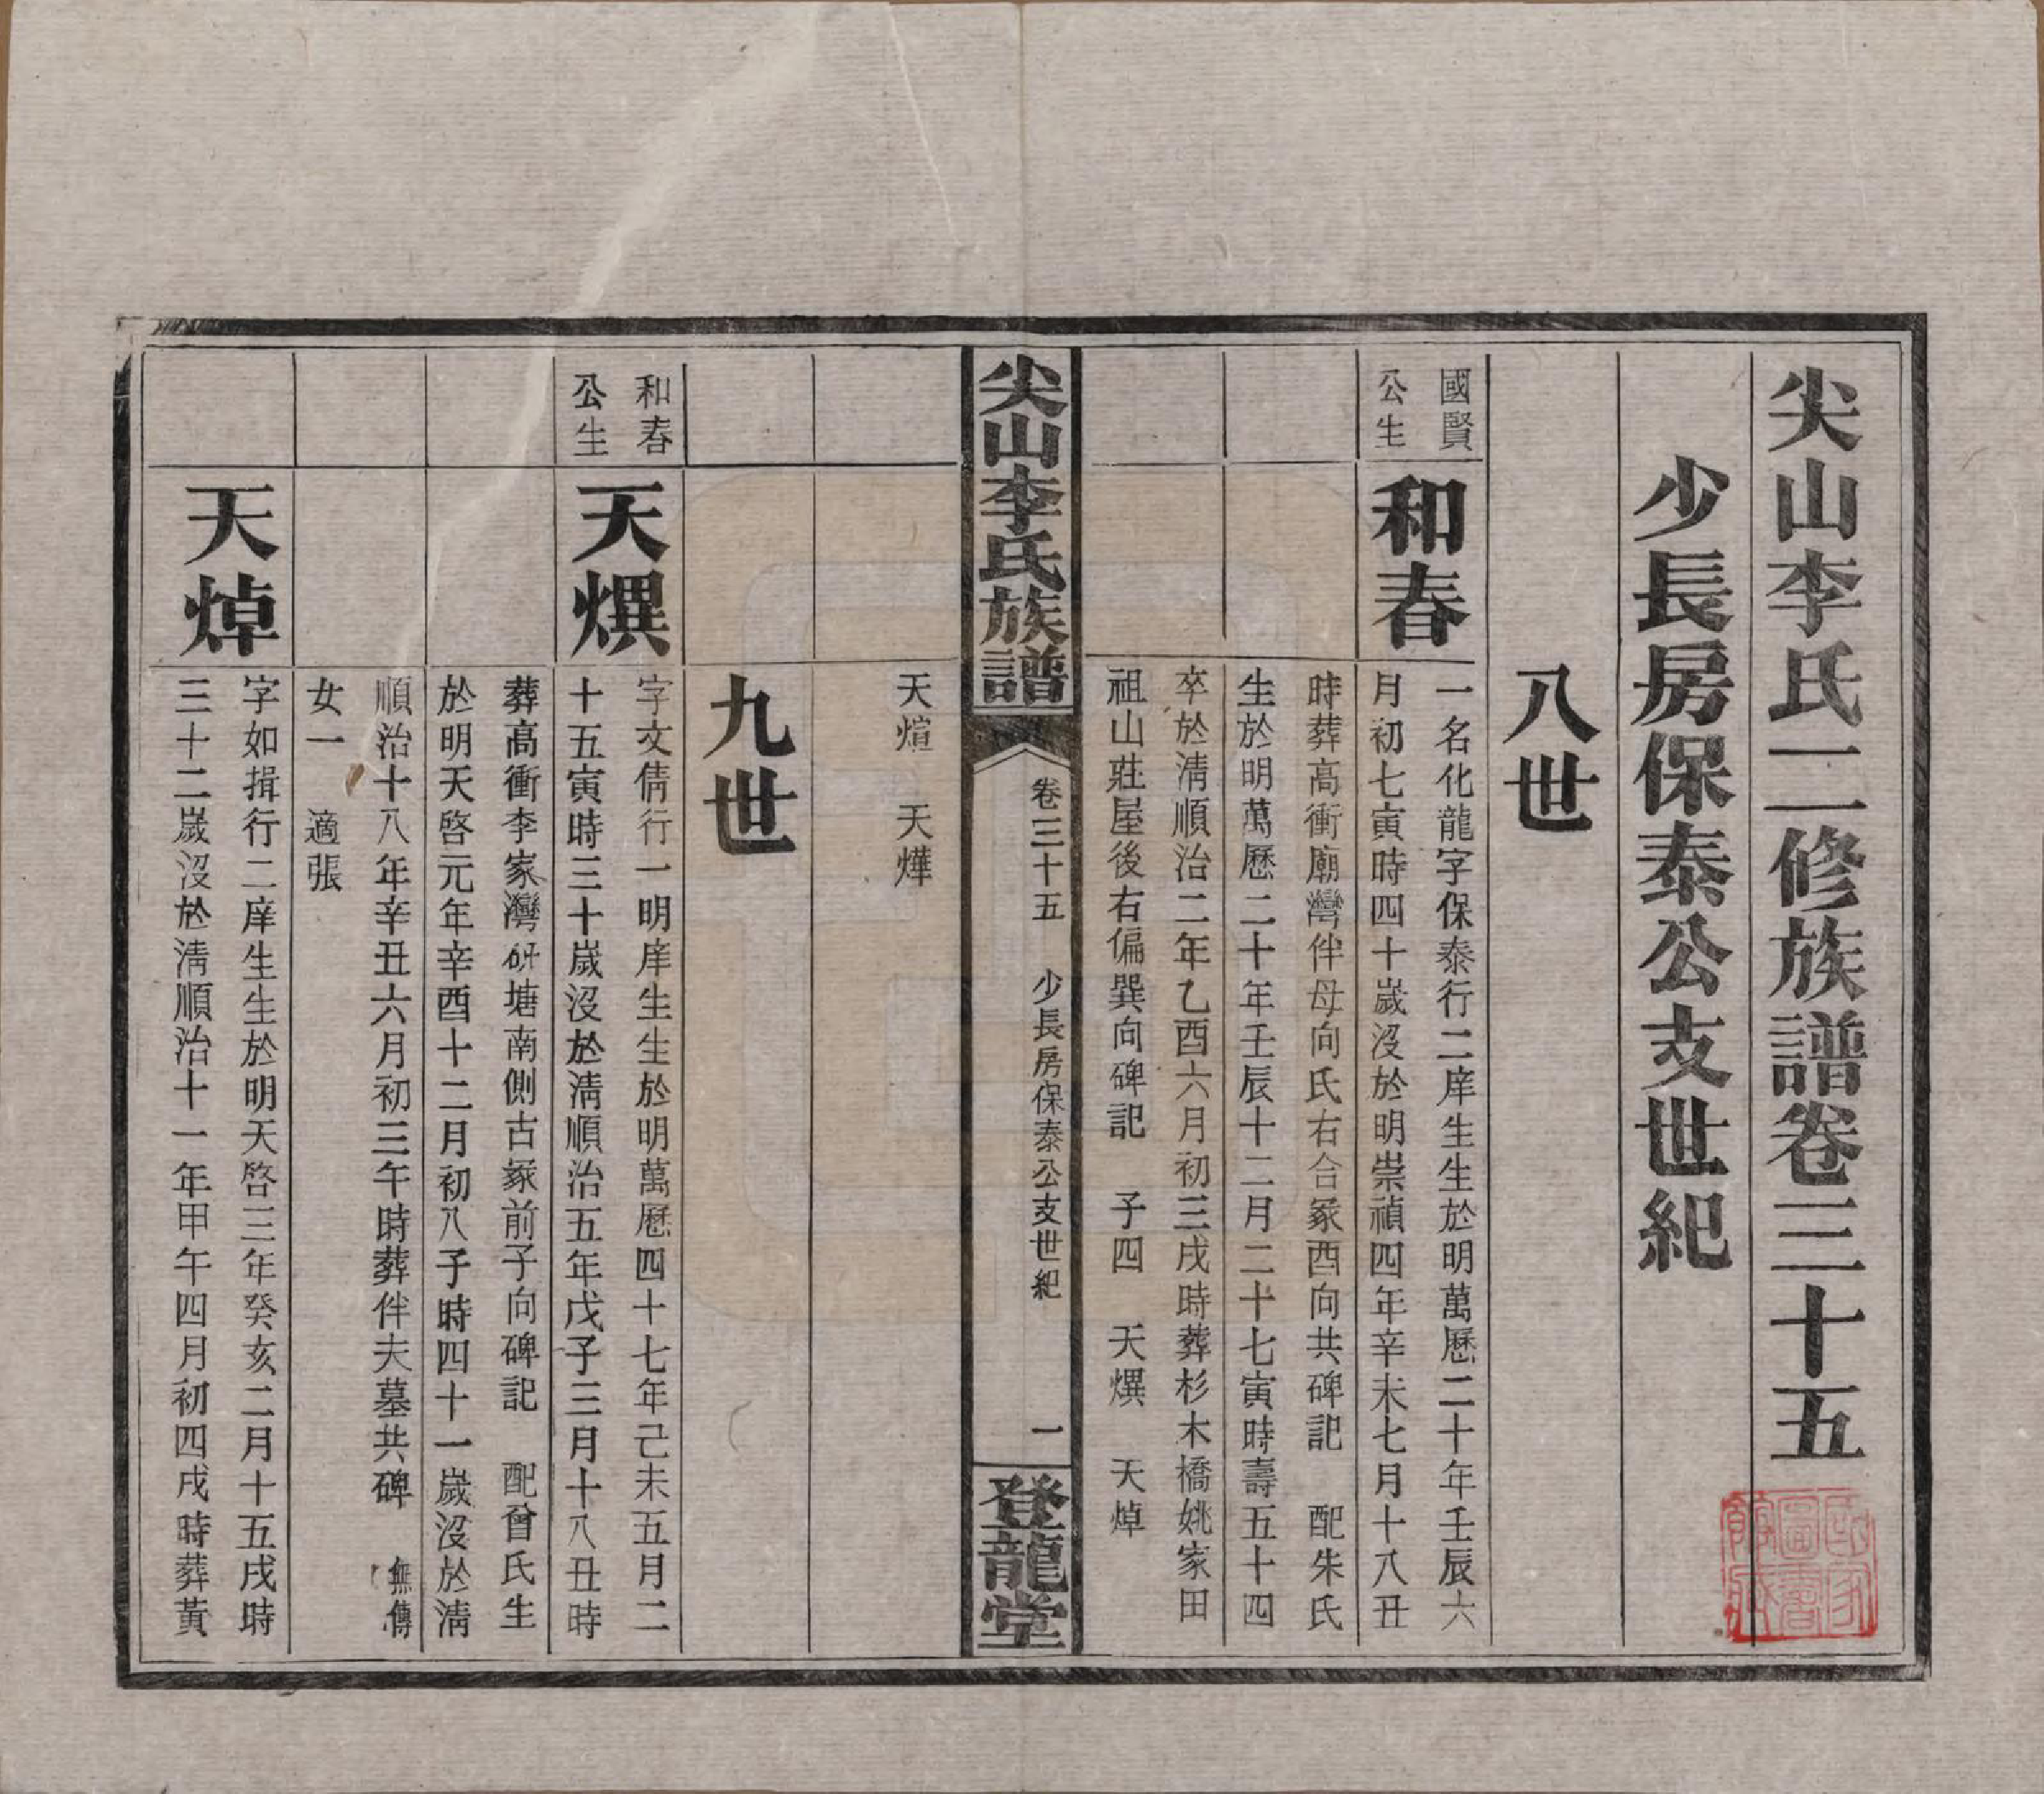 尖山李氏二修族譜卷三十五
少長房保泰公支世紀
八世
國賢
公生
和春
一名化龍字保泰行二庠生生於明萬歷二十年壬辰六
月初七寅時四十歲沒於明崇禎四年辛未七月十八丑
時葬高衝廟灣伴母向氏右合冢酉向共碑記 配朱氏
生於明萬歷二十年壬辰十二月二十七寅時壽五十四
卒於清順治二年乙酉六月初三戌時葬杉木橋姚家田
祖山莊屋後右偏巽向碑記 子四 天熼 天焯
尖山李氏族譜
卷三十五 少長房保泰公支世紀
一
登龍堂
天煊 天燁
九世
和春
公生
天熼
字文倩行一明庠生生於明萬歷四十七年己未五月二
十五寅時三十歲沒於清順治五年戊子三月十八丑時
葬高衝李家灣研塘南側古冢前子向碑記 配曾氏生
於明天啓元年辛酉十二月初八子時四十一歲沒於清
順治十八年辛丑六月初三午時葬伴夫墓共碑 無傳
女一 適張
天焯
字如揖行二庠生生於明天啓三年癸亥二月十五戌時
三十二歲沒於清順治十一年甲午四月初四戌時葬黃